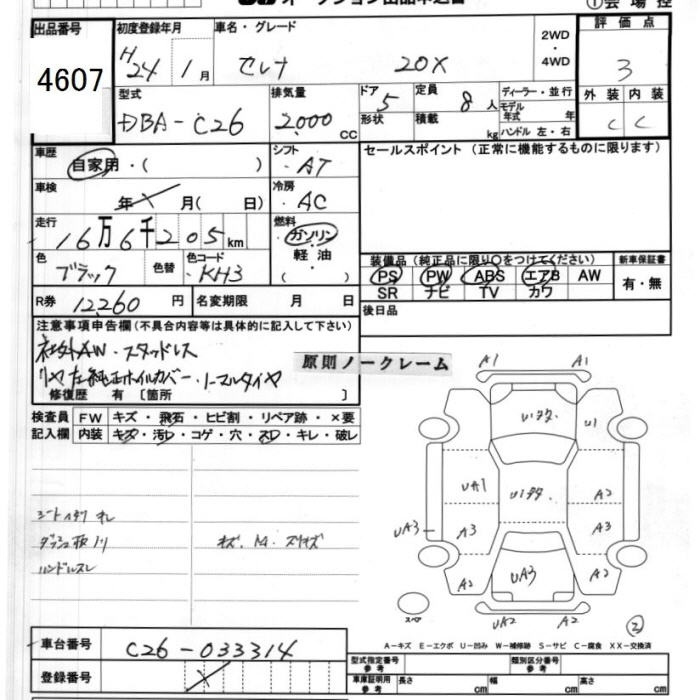 出品番号
4607
初度登録年月
H24 1月
車名・グレード
セレナ 20X
2WD
・
4WD
評価点
3
外装 内装
C C
型式
DBA-C26
排気量
2,000 CC
ドア 5
形状
定員 8人
積載 kg
ディーラー・並行
モデル年式 年
ハンドル 左・右
車歴
自家用・( )
シフト
・AT
車検
年 月( 日)
冷房
・AC
走行
16万6千205km
燃料
ガソリン
・
軽油
( )
色
ブラック
色替
色コード
・KH3
R券 12,260円
名変期限 月 日
セールスポイント (正常に機能するものに限ります)
装備品 (純正品に限り○をつけてください)
PS PW ABS エアB AW
SR ナビ TV カワ
新車保証書
有・無
後日品
注意事項申告欄 (不具合内容等は具体的に記入して下さい)
社外AW・スタッドレス
リヤ左純正ホイルカバー・ノーマルタイヤ
修復歴 有 〔箇所 〕
原則ノークレーム
検査員記入欄
FW キズ・飛石・ヒビ割・リペア跡・×要
内装 キズ・汚レ・コゲ・穴・スレ・キレ・破レ
ダッシュ板ノリ
ハンドルスレ
A1 A1
U1
UA1
A2
UA3
A3
A3
A2
UA3
A2
スペア
UA2 A2
A-キズ E-エクボ U-凹み W-補修跡 S-サビ C-腐食 XX-交換済
車台番号 C26-033314
登録番号
型式指定番号
参考
類別区分番号
参考
車庫証明用
参考
長さ cm
幅 cm
高さ cm